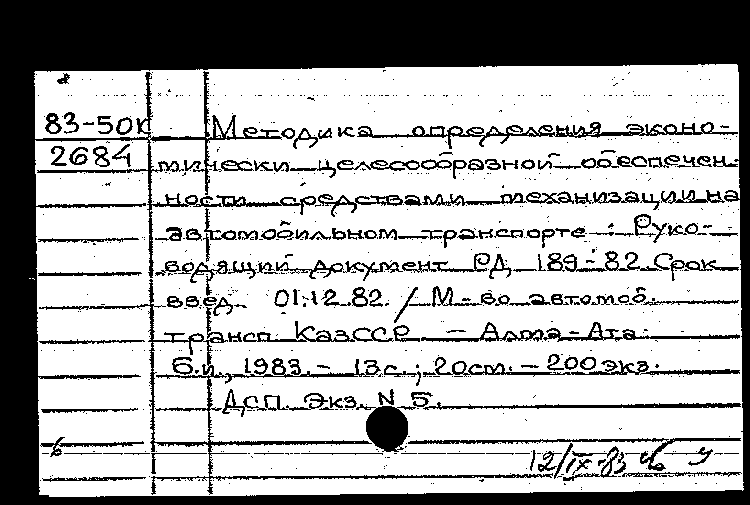 83-50К Методика определения эконо-
2684 мически целесообразной обеспечен-
ности средствами механизации на
автомобильном транспорте : Руко-
водящий документ РД 189-82. Срок
введ. 01.12.82. / М-во автомоб.
трансп. КазССР. — Алма-Ата:
Б.и., 1983. — 13с.; 20см. — 200экз.
ДСП. Экз. N 5.
б 12/IX-83